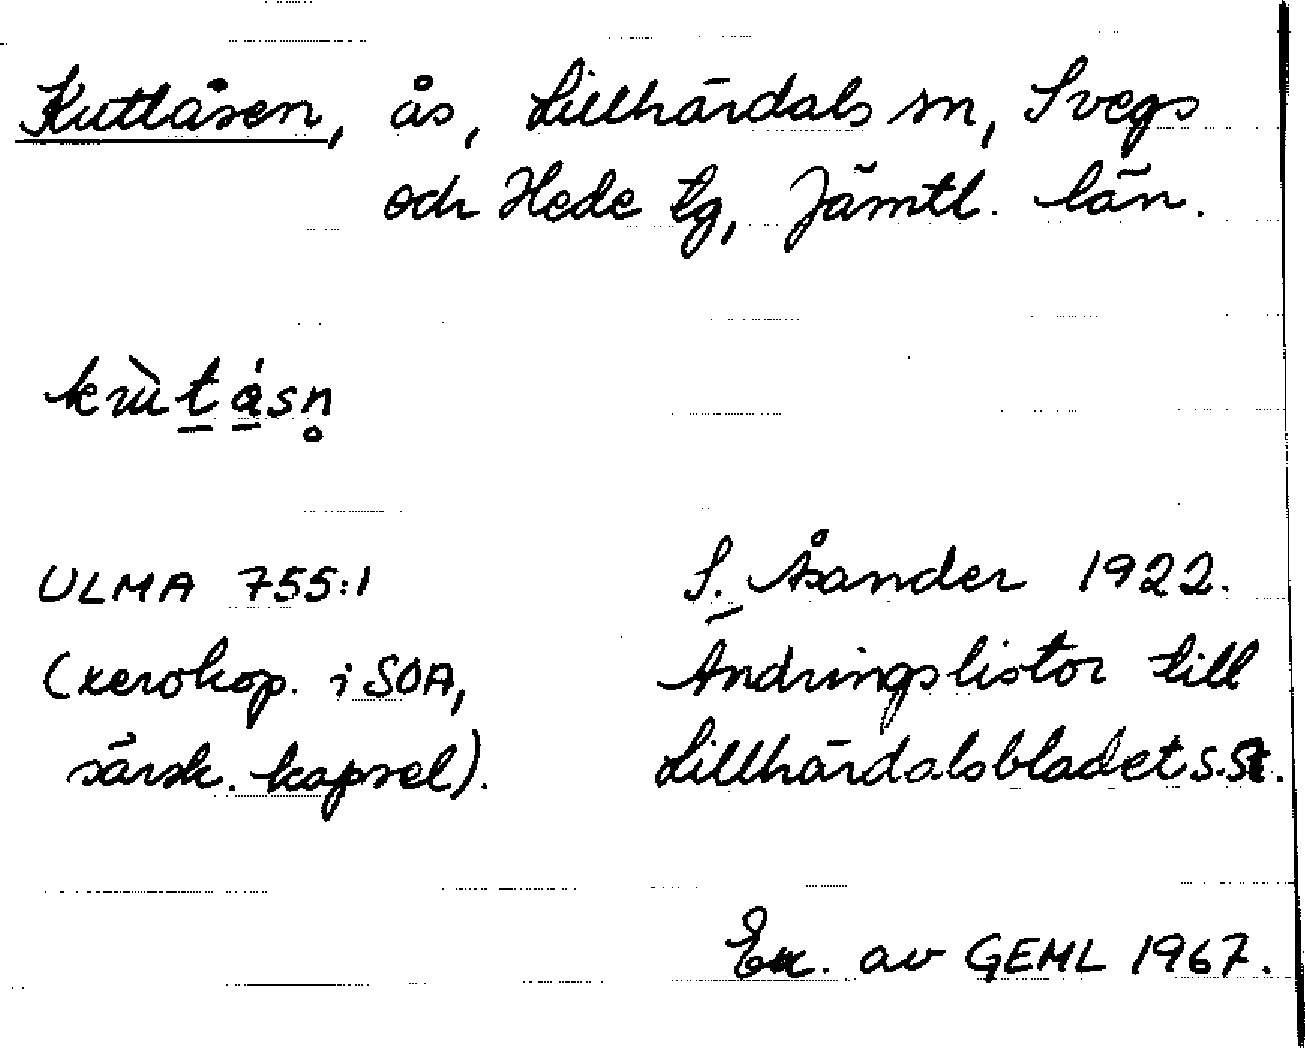 Kuttåsen, ås, Lillhärdals sn, Svegs
och Hede tg, Jämtl. län.
ULMA 755:1
S. Åsander 1922.
(xerokop. i SOA,
Ändringslistor till
särsk. kapsel).
Lillhärdalsbladet s.St.
Ex. av GEML 1967.